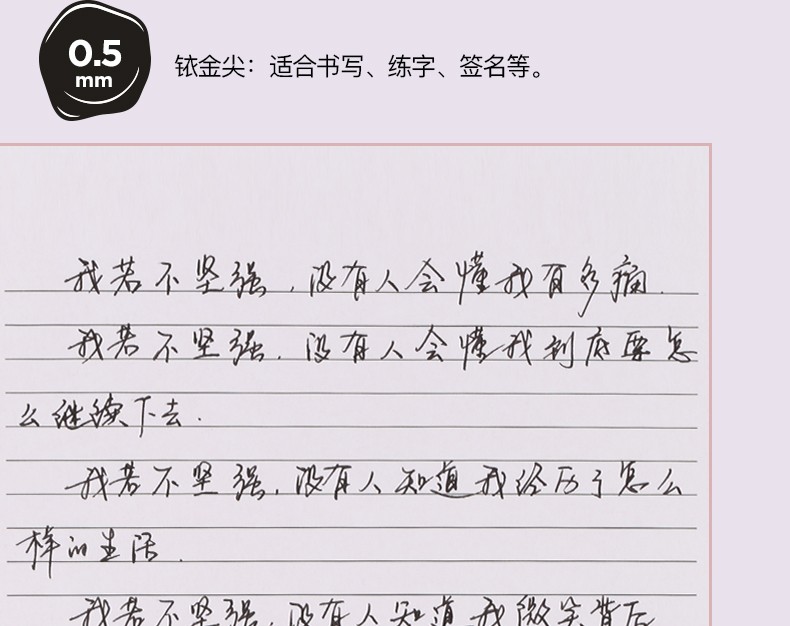 0.5
mm
铱金尖：适合书写、练字、签名等。
我若不坚强,没有人会懂我有多痛.
我若不坚强.没有人会懂我到底要怎
么继续下去.
我若不坚强,没有人知道我经历了怎么
样的生活.
我若不坚强,没有人知道我微笑背后